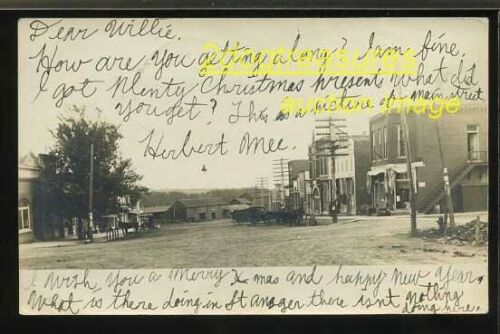 Dear Willie.
How are you getting along? I am fine.
I got Plenty Christmas present what did
you get? This is a picture of main street,
Herbert Mee.
I wish you a Merry X mas and happy New Year.
What is there doing in St there isnt nothing
doing here.